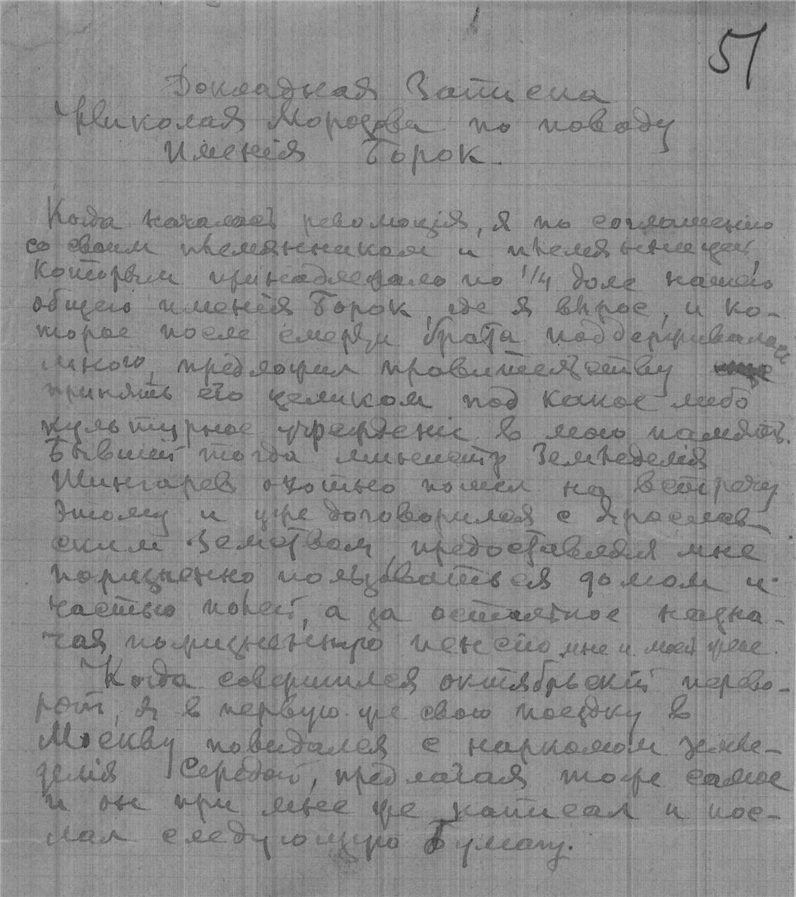 51
Докладная Записка
Николая Морозова по поводу
имения Борок.
Когда началась революція, я по соглашению
со своим племянником и племянницей,
которым принадлежало по 1/4 доле нашего
общего имения Борок, где я вырос, и ко-
торое после смерти брата поддерживалось
мною, предложил правительству
принять его целиком под какое либо
культурное учреждение в мою память.
Бывший тогда министр Земледелия
Шингарев охотно пошел на встречу
этому и уже договорился с Ярослав-
ским Земством, предоставляя мне
пожизненно пользоваться домом и
частью полей, а за остальное назна-
чая пожизненную пенсию мне и моей жене.
Когда совершился октябрьский перево-
рот, я в первую же свою поездку в
Москву повидался с наркомом земле-
делия Середой, предлагая тоже самое
и он при мне же написал и пос-
лал следующую бумагу.